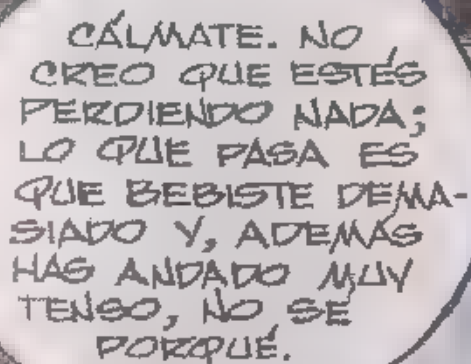 CÁLMATE. NO
CREO QUE ESTÉS
PERDIENDO NADA;
LO QUE PASA ES
QUE BEBISTE DEMA-
SIADO Y, ADEMÁS
HAS ANDADO MUY
TENSO, NO SÉ
PORQUÉ.